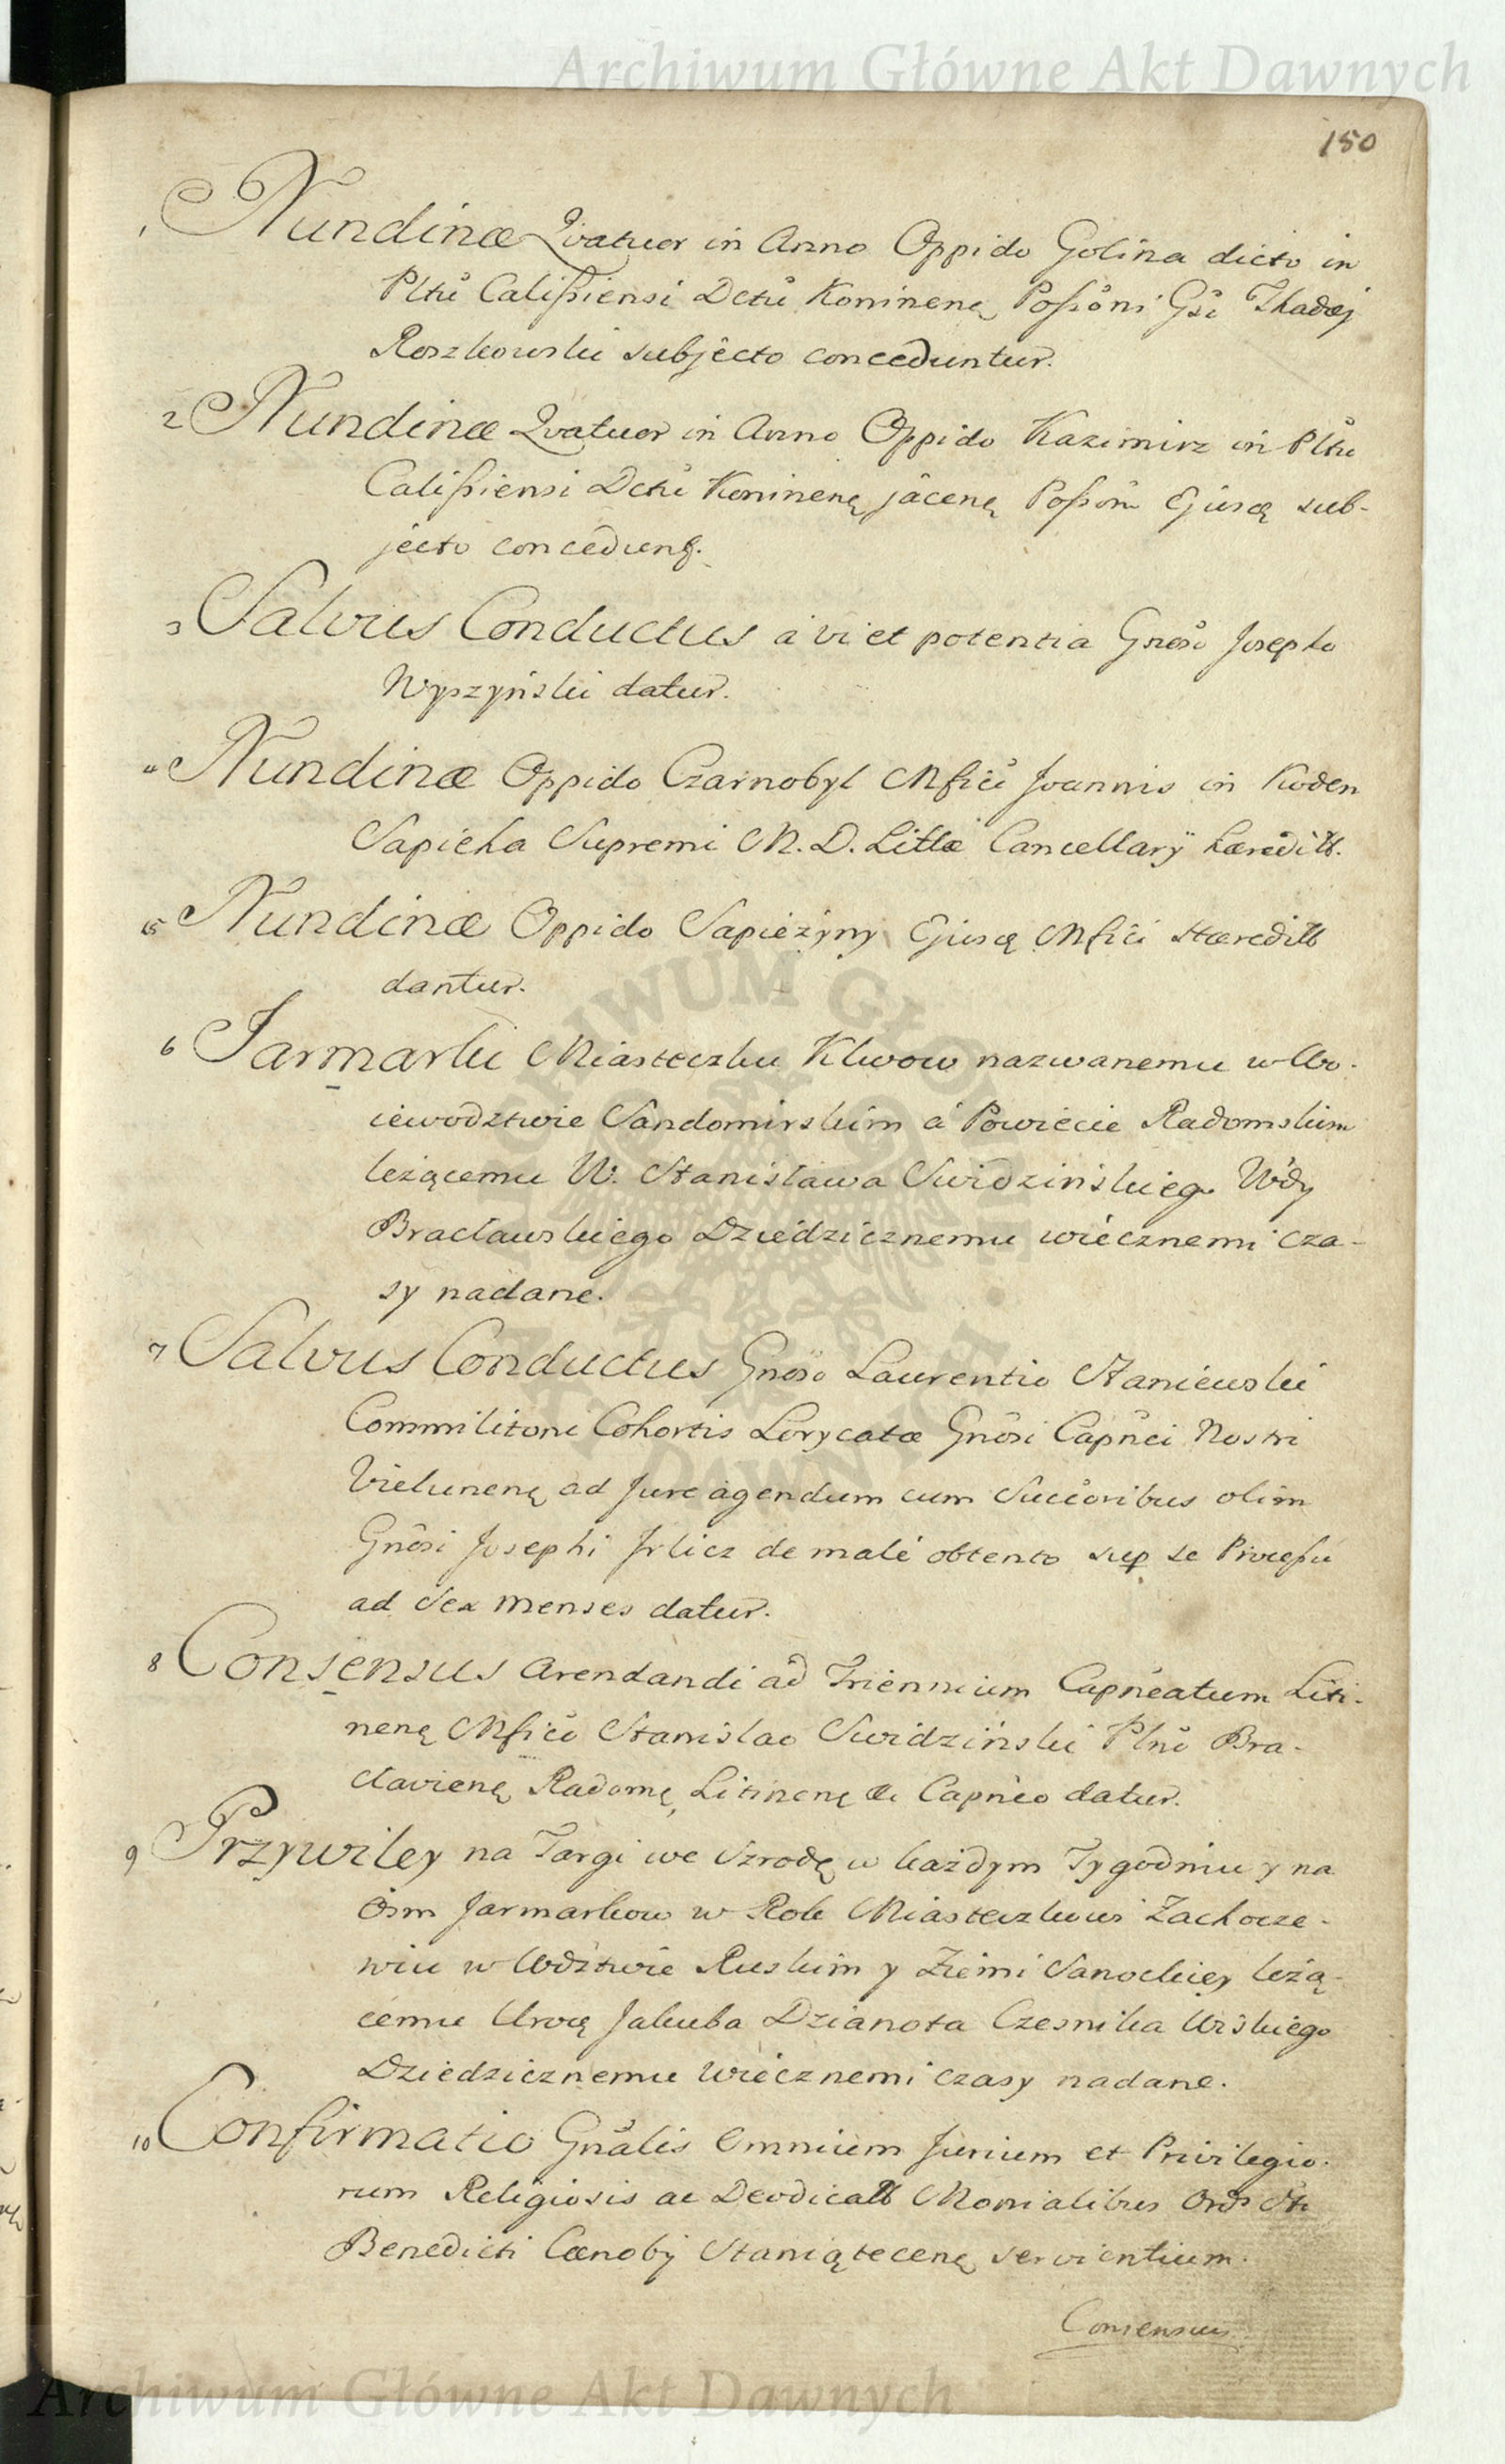 Archiwum Główne Akt Dawnych
150
1 Nundinæ Qvatuor in Anno Oppido Golina dicto in
Pltũ Calißiensi Dctũ Koninenę Poßoni Gsi Thadæj
Roszkowski subjecto conceduntur.
2 Nundinæ Qvatuor in Anno Oppido Kazimirz in Pltu
Calißiensi Dctũ Koninenę jacenę Poßoni Ejusq sub-
jecto concedunt.
3 Salvus Conductus a vi et potentia Gnoso Josepho
Wyszyński datur.
4 Nundinæ Oppido Czarnobyl Mfici Joannis in Koden
Sapieha Supremi M. D. Littæ Cancellarÿ hæredit.
5 Nundinæ Oppido Sapieżyny Ejusq Mfici Hæredit
dantur.
6 Jarmarki Miasteczku Klwow nazwanemu w Wo-
iewodztwie Sandomirskim á Powiecie Radomskim
leżącemu W. Stanisława Swidzińskiego Wdy
Bracławskiego Dziedzicznemu wiecznemi cza-
sy nadane.
7 Salvus Conductus Gnoso Laurentio Staniewski
Commilitoni Cohortis Lorycatæ Gnosi Capnei Nostri
Vielunenę ad Jure agendum cum Succoribus olim
Gnosi Josephi Jrlicz de malé obtento sup se Proceßu
ad Sex menses datur.
8 Consensus Arendandi ad Triennium Capneatum Liti-
nenę Mfico Stanislao Swidziński Plno Bra-
clavienę Radomę, Litinenę &c Capneo datur.
9 Przywiley na Targi we Szrodę w każdym Tygodniu y na
Osm Jarmarkow w Rok Miasteczkowi Zachocze-
wiu w Wdztwie Ruskim y Ziemi Sanockiey leżą-
cemu Urogo Jakuba Dzianota Czesnika Wiskiego
Dziedzicznemu wiecznemi czasy nadane.
10 Confirmatio Gnalis Omnium Jurium et Privilegio-
rum Religiosis ac Deodicatt Monialibus Ords Sti
Benedicti Cænobÿ Staniątecenę servientium.
Consensus
Archiwum Główne Akt Dawnych